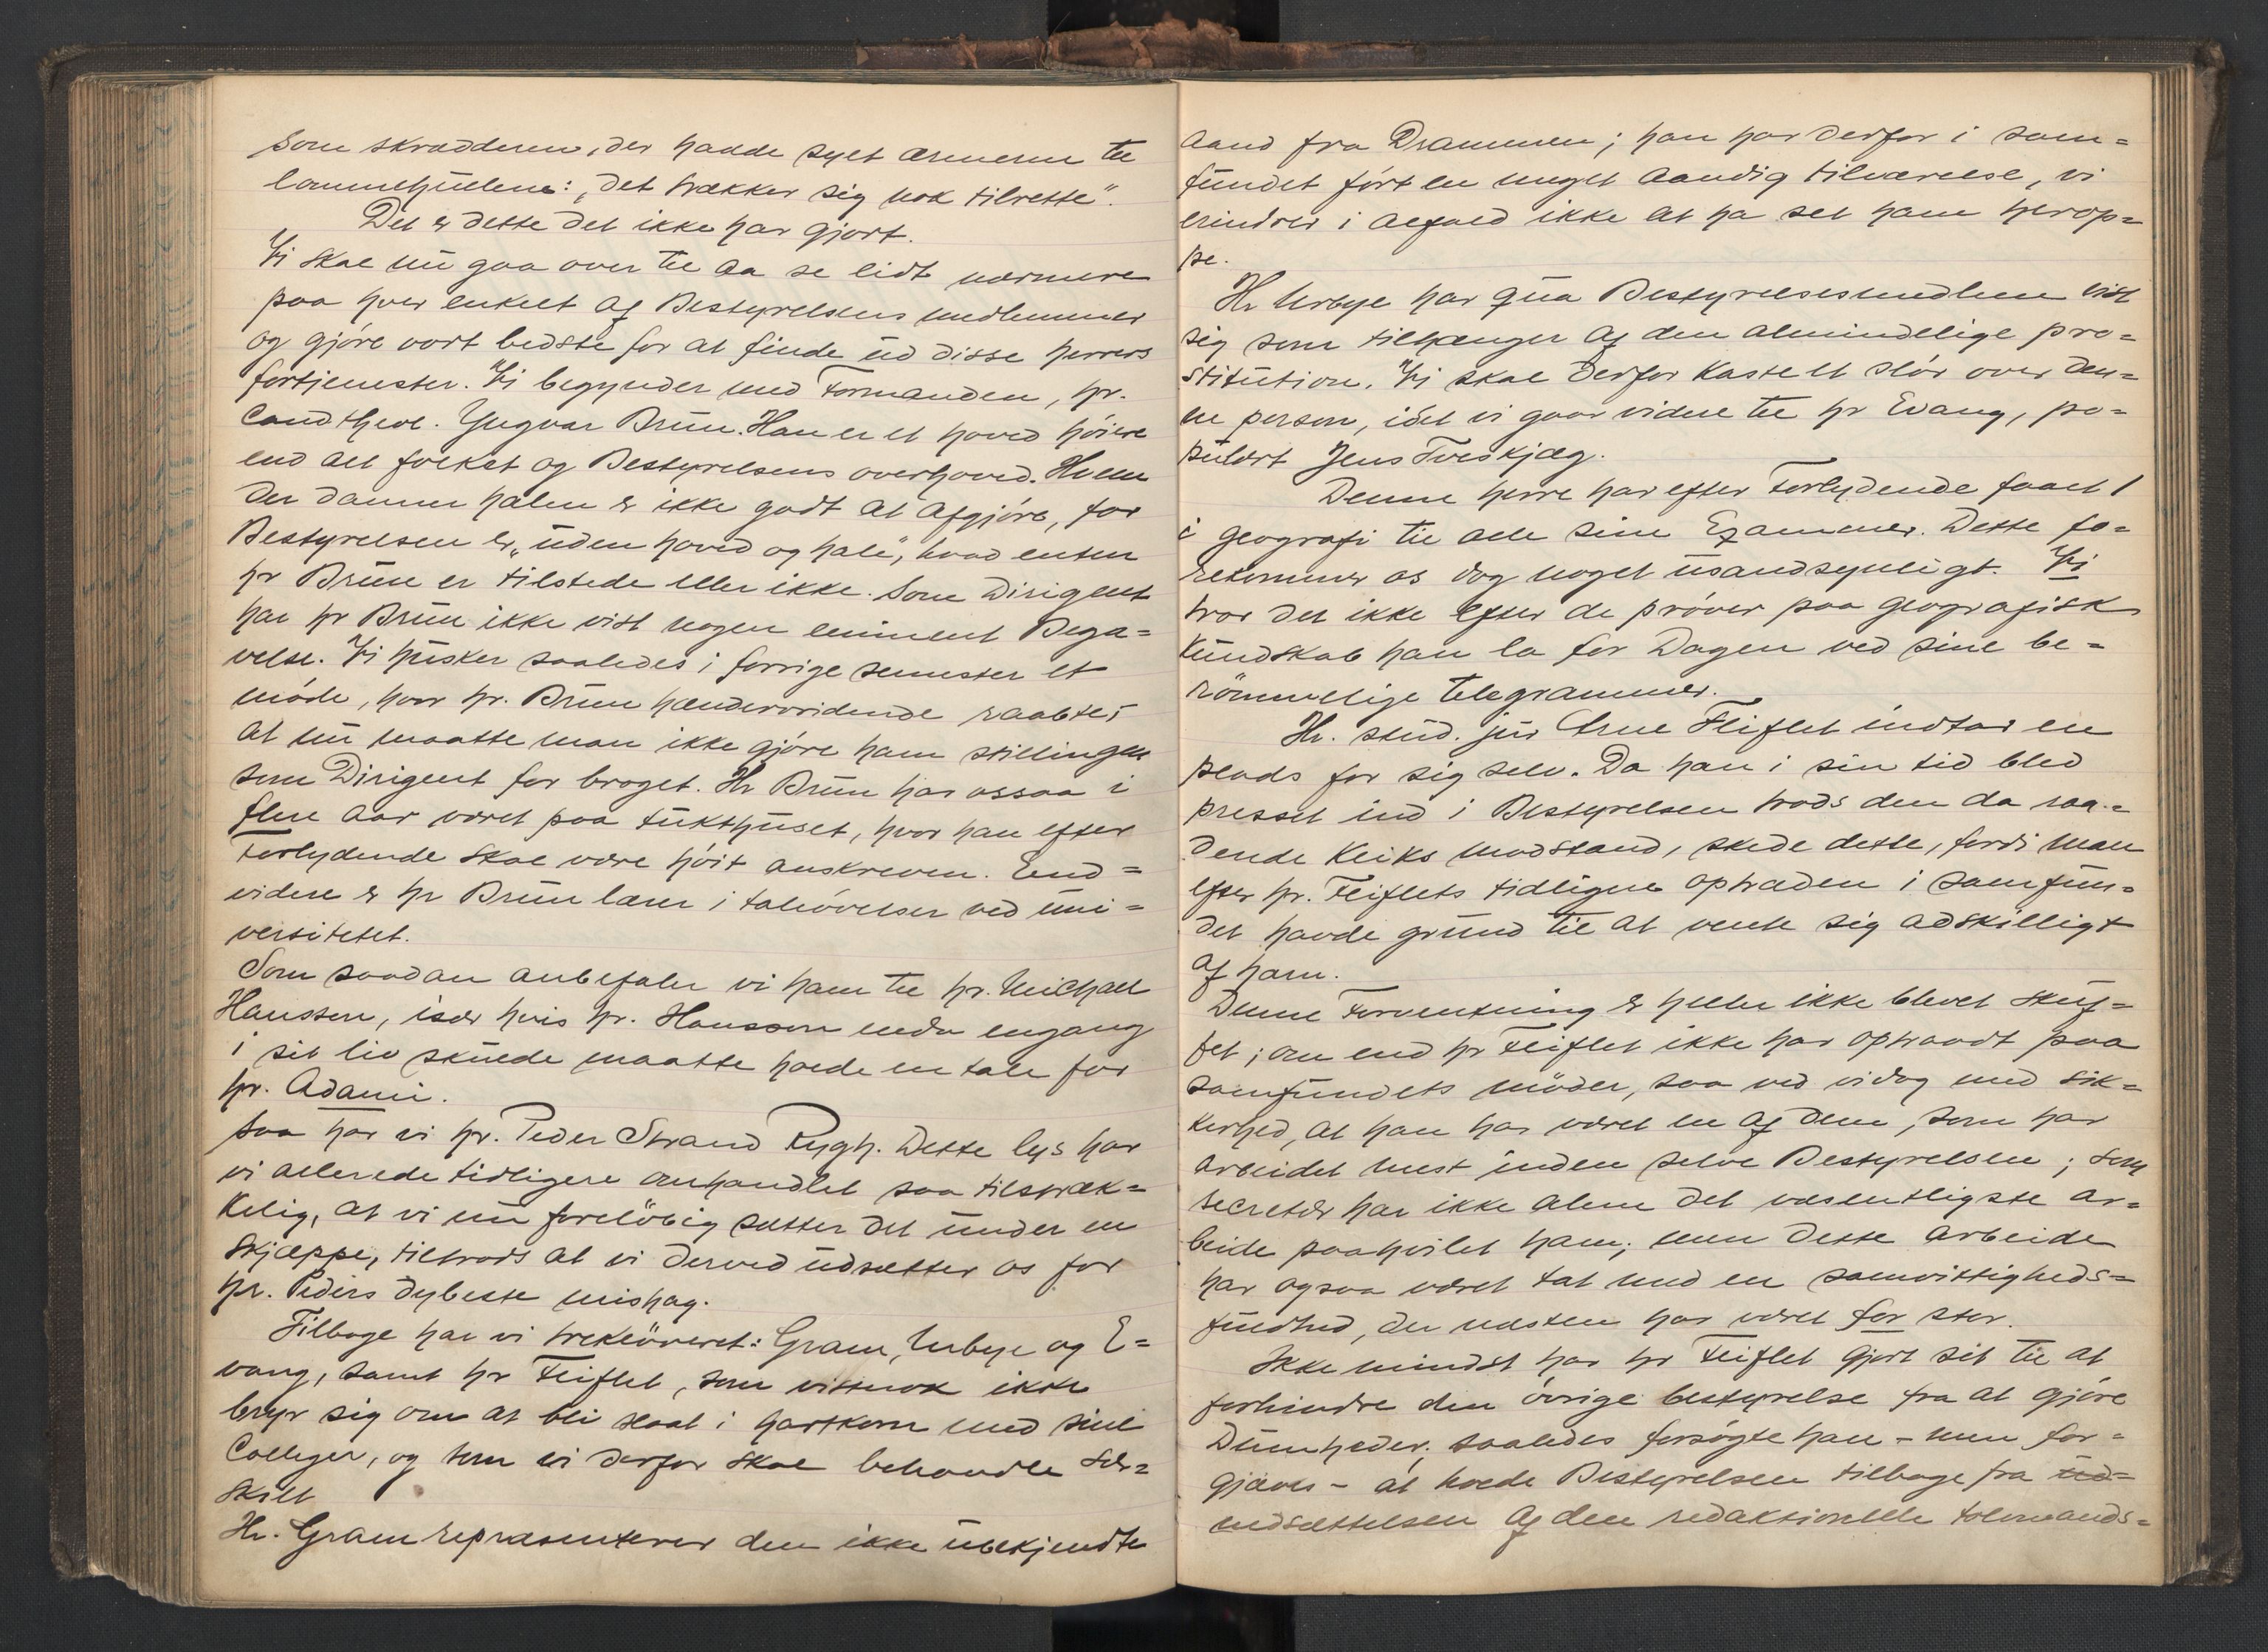 som skrædderen, der havde syet ærmerne til
lommehullene: „det trækker sig nok tilrette".
Det er dette det ikke har gjort.
Vi skal nu gaa over til aa se lidt nærmere
paa hver enkelt af Bestyrelsens medlemmer
og gjöre vort bedste for at finde ud disse herrers
fortjenester. Vi begynder med Formanden, hr.
Cand theol. Yngvar Brun. Han er et hoved höiere
end alt folket og Bestyrelsens overhoved. Hvem
der danner halen er ikke godt at afgjöre, for
Bestyrelsen er „uden hoved og hale", hvad enten
hr Brun er tilstede eller ikke. Som Dirigent
har hr Brun ikke vist nogen eminent Bega=
velse. Vi husker saaledes i forrige semester et
möde, hvor hr. Brun hændervridende raabte,
at nu maatte man ikke gjöre ham stillingen
som Dirigent for broget. Hr Brun har ossaa i
flere Aar været paa tukthuset, hvor han efter
Forlydende skal være höit anskreven. End=
videre er hr Brun lærer i taleövelser ved uni=
versitetet.
Som saadan anbefaler vi ham til hr. Michael
Hansson, især hvis hr. Hansson endu engang
i sit liv skulde maatte holde en tale for
hr. Adami.
Saa har vi hr. Peder Strand Rygh. Dette lys har
vi allerede tidligere omhandlet saa tilstræk=
kelig, at vi nu forelöbig sætter det under en
Skjæppe, tiltrods at vi derved udsætter os for
hr. Peders dybeste mishag.
Tilbage har vi trekleöveret: Gram, Urbye og E=
vang, samt hr Fliflet, som vistnok ikke
bryr sig om at bli slaat i hartkorn med sine
Colleger, og som vi derfor skal behandle sær=
skilt
Hr. Gram repræsenterer den ikke ubekjendte
Aand fra Drammen; han har derfor i sam=
fundet fört en meget aandig tilværelse, vi
erindrer i alfald ikke at ha set ham herop=
pe.
Hr Urbye har qua Bestyrelsesmedlem vist
sig som tilhænger af den almindelige pro=
stitution. Vi skal derfor kaste et slör over den=
ne person, idet vi gaar videre til hr Evang, po=
pulært Jens Tveskjæg.
Denne herre har efter Forlydende faaet 1
i geografi til alle sine Examener. Dette fo=
rekommer os dog noget usandsynligt. Vi
tror det ikke efter de pröver paa geografisk
kundskab han la for Dagen ved sine be=
römmelige telegrammer.
Hr. stud. jur Arne Fliflet indtar en
plads for sig selv. Da han i sin tid blev
presset ind i Bestyrelsen trods den da raa=
dende kliks modstand, skede dette, fordi man
efter hr. Fliflets tidligere optræden i samfun=
det havde grund til at vente sig adskilligt
af ham.
Denne Forventning er heller ikke blevet skuf=
fet; om end hr Fliflet ikke har optraadt paa
samfundets möder, saa ved vi dog med sik=
kerhed, at han har været en af dem, som har
arbeidet mest inden selve Bestyrelsen; som
secretær har ikke alene det væsentligste ar=
beide paahvilet ham; men dette arbeide
har ogsaa været tat med en samvittigheds=
fuldhed, der næsten har været for stor.
Ikke mindst har hr Fliflet gjort sit til at
forhindre den övrige bestyrelse fra at gjöre
Dumheder; saaledes forsögte han – men for=
gjæves – at holde Bestyrelsen tilbage fra ned=
nedsættelsen af den redaktionelle tolvmands=